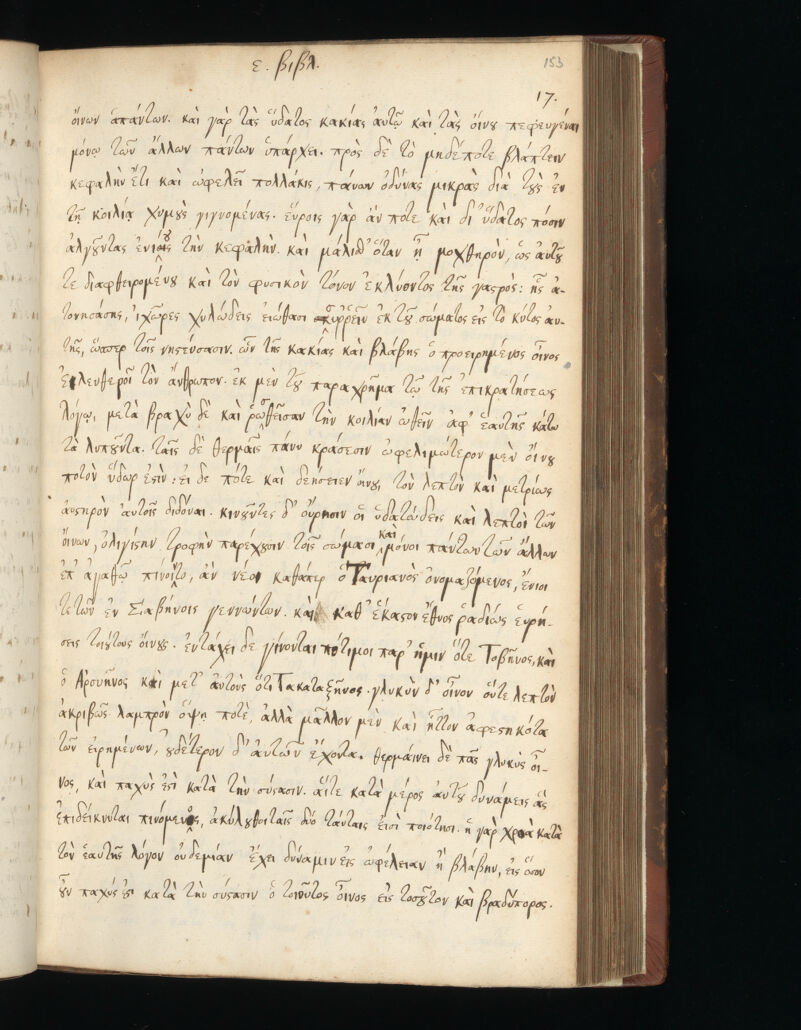 ε. βιβλ.
153
17.
ὄινων ἁπάντων. καὶ γὰρ τὰς ὕδατος κακίας ἀυτῷ καὶ τὰς ὄινου πεφευγέναι
μόνῳ τῶν ἄλλων πάντων ὑπάρχει. πρὸς δὲ τὸ μηδέποτε βλάπτειν
κεφαλὴν ἔτι καὶ ὠφελεῖ πολλάκις, πάνων ὀδύνας μικρὰς διὰ τοὺς ἐν
τῇ κοιλίᾳ χυμοὺς γιγνομένας. ἕυροις γὰρ ἄν ποτε καὶ δι' ὕδατος πόσιν
ἀλγοῦντας ἐνίους τὴν κεφαλήν. καὶ μάλισθ' ὅταν ᾖ μοχθηρὸν, ὡς ἀυτοῦ
τε διαφθειρομένου καὶ τὸν φυσικὸν τόνον ἐκλύοντος τῆς γαστρὸς: ἧς ἀ-
τονησάσης, ἰχῶρες χυλώδεις ἐιώθασι συῤῥεῖν ἐκ τοῦ σώματος εἰς τὸ κύτος ἀυ-
τῆς, ὥσπερ τοῖς νηστέυσασιν. ὧν τῆς κακίας καὶ βλάβης ὁ προειρημένος οἶνος
ἐλευθεροῖ τὸν ἄνθρωπον. ἐκ μὲν τοῦ παραχρῆμα τῷ τῆς ἐπικρατήσεως
λόγῳ, μετὰ βραχὺ δὲ καὶ ῥωσθεῖσαν τὴν κοιλίαν ὠθεῖν ἀφ' ἑαυτῆς κάτω
τὰ λυποῦντα. ταῖς δὲ θερμαῖς πάνυ κράσεσιν ὠφελιμώτερον μὲν ὄινου
ποτὸν ὕδωρ ἐστὶν: εἰ δε ποτε καὶ δεήσειεν ὄινου, τὸν λεπτὸν καὶ μετρίως
ἀυστηρὸν ἀυτοῖς διδόναι. κινοῦντες δ' ὄυρησιν οἱ ὑδατώδεις καὶ λεπτοὶ τῶν
ὄινων, ὀλιγίστην τροφὴν παρέχουσιν τοῖς σώμασι καὶ μόνοι πάντων τῶν ἄλλων
ἐπ' ἀγαθῷ πίνοιντο, ἂν νέοι καθάπερ ὁ Ταυριανὸς ὀνομαζόμενος, ἔνιοι
τε τῶν ἐν Σαβήνοις γεννώντων. καὶ καθ' ἕκαστον ἔθνος ῥαδίως ἑυρή-
σεις τοιούτους ὄινους. ἐν τάχει δε γίνονται πότιμοι παρ' ἡμῖν ὅτε Τοβῆνος, καὶ
ὁ Ἀρσυῆνος καὶ μετ' ἀυτοὺς ὅτι Τακαταξηνος. γλυκὺν δ' οἶνον ὄυτε λεπτὸν
ἀκριβῶς λαμπρὸν ὄψῃ ποτὲ, ἀλλὰ μᾶλλον μὲν καὶ ἧττον ἀφεστηκότα
τῶν ἐιρημένων, οὐδέτερον δ' ἀυτῶν ἔχοντα. θερμάινει δὲ πᾶς γλυκὺς οἶ-
νος, καὶ παχὺς ἐστὶ κατὰ τὴν σύστασιν. ἅιτε κατὰ μέρος ἀυτοῦ δυνάμεις ἃς
ἐπιδείκνυται πινόμενος, ἀκόλουθοι ταῖς δύο τάυταις εἰσὶ ποιότησι. ἡ γὰρ χροὰ κατὰ
τὸν ἑαυτῆς λόγον ὀυδεμίαν ἔχει δύναμιν εἰς ὠφέλειαν ἢ βλάβην, εἰς ὅσον
οὖν παχύς ἐστι κατὰ τὴν σύστασιν ὁ τοιοῦτος οἶνος εἰς τοσοῦτον καὶ βραδύπορος.